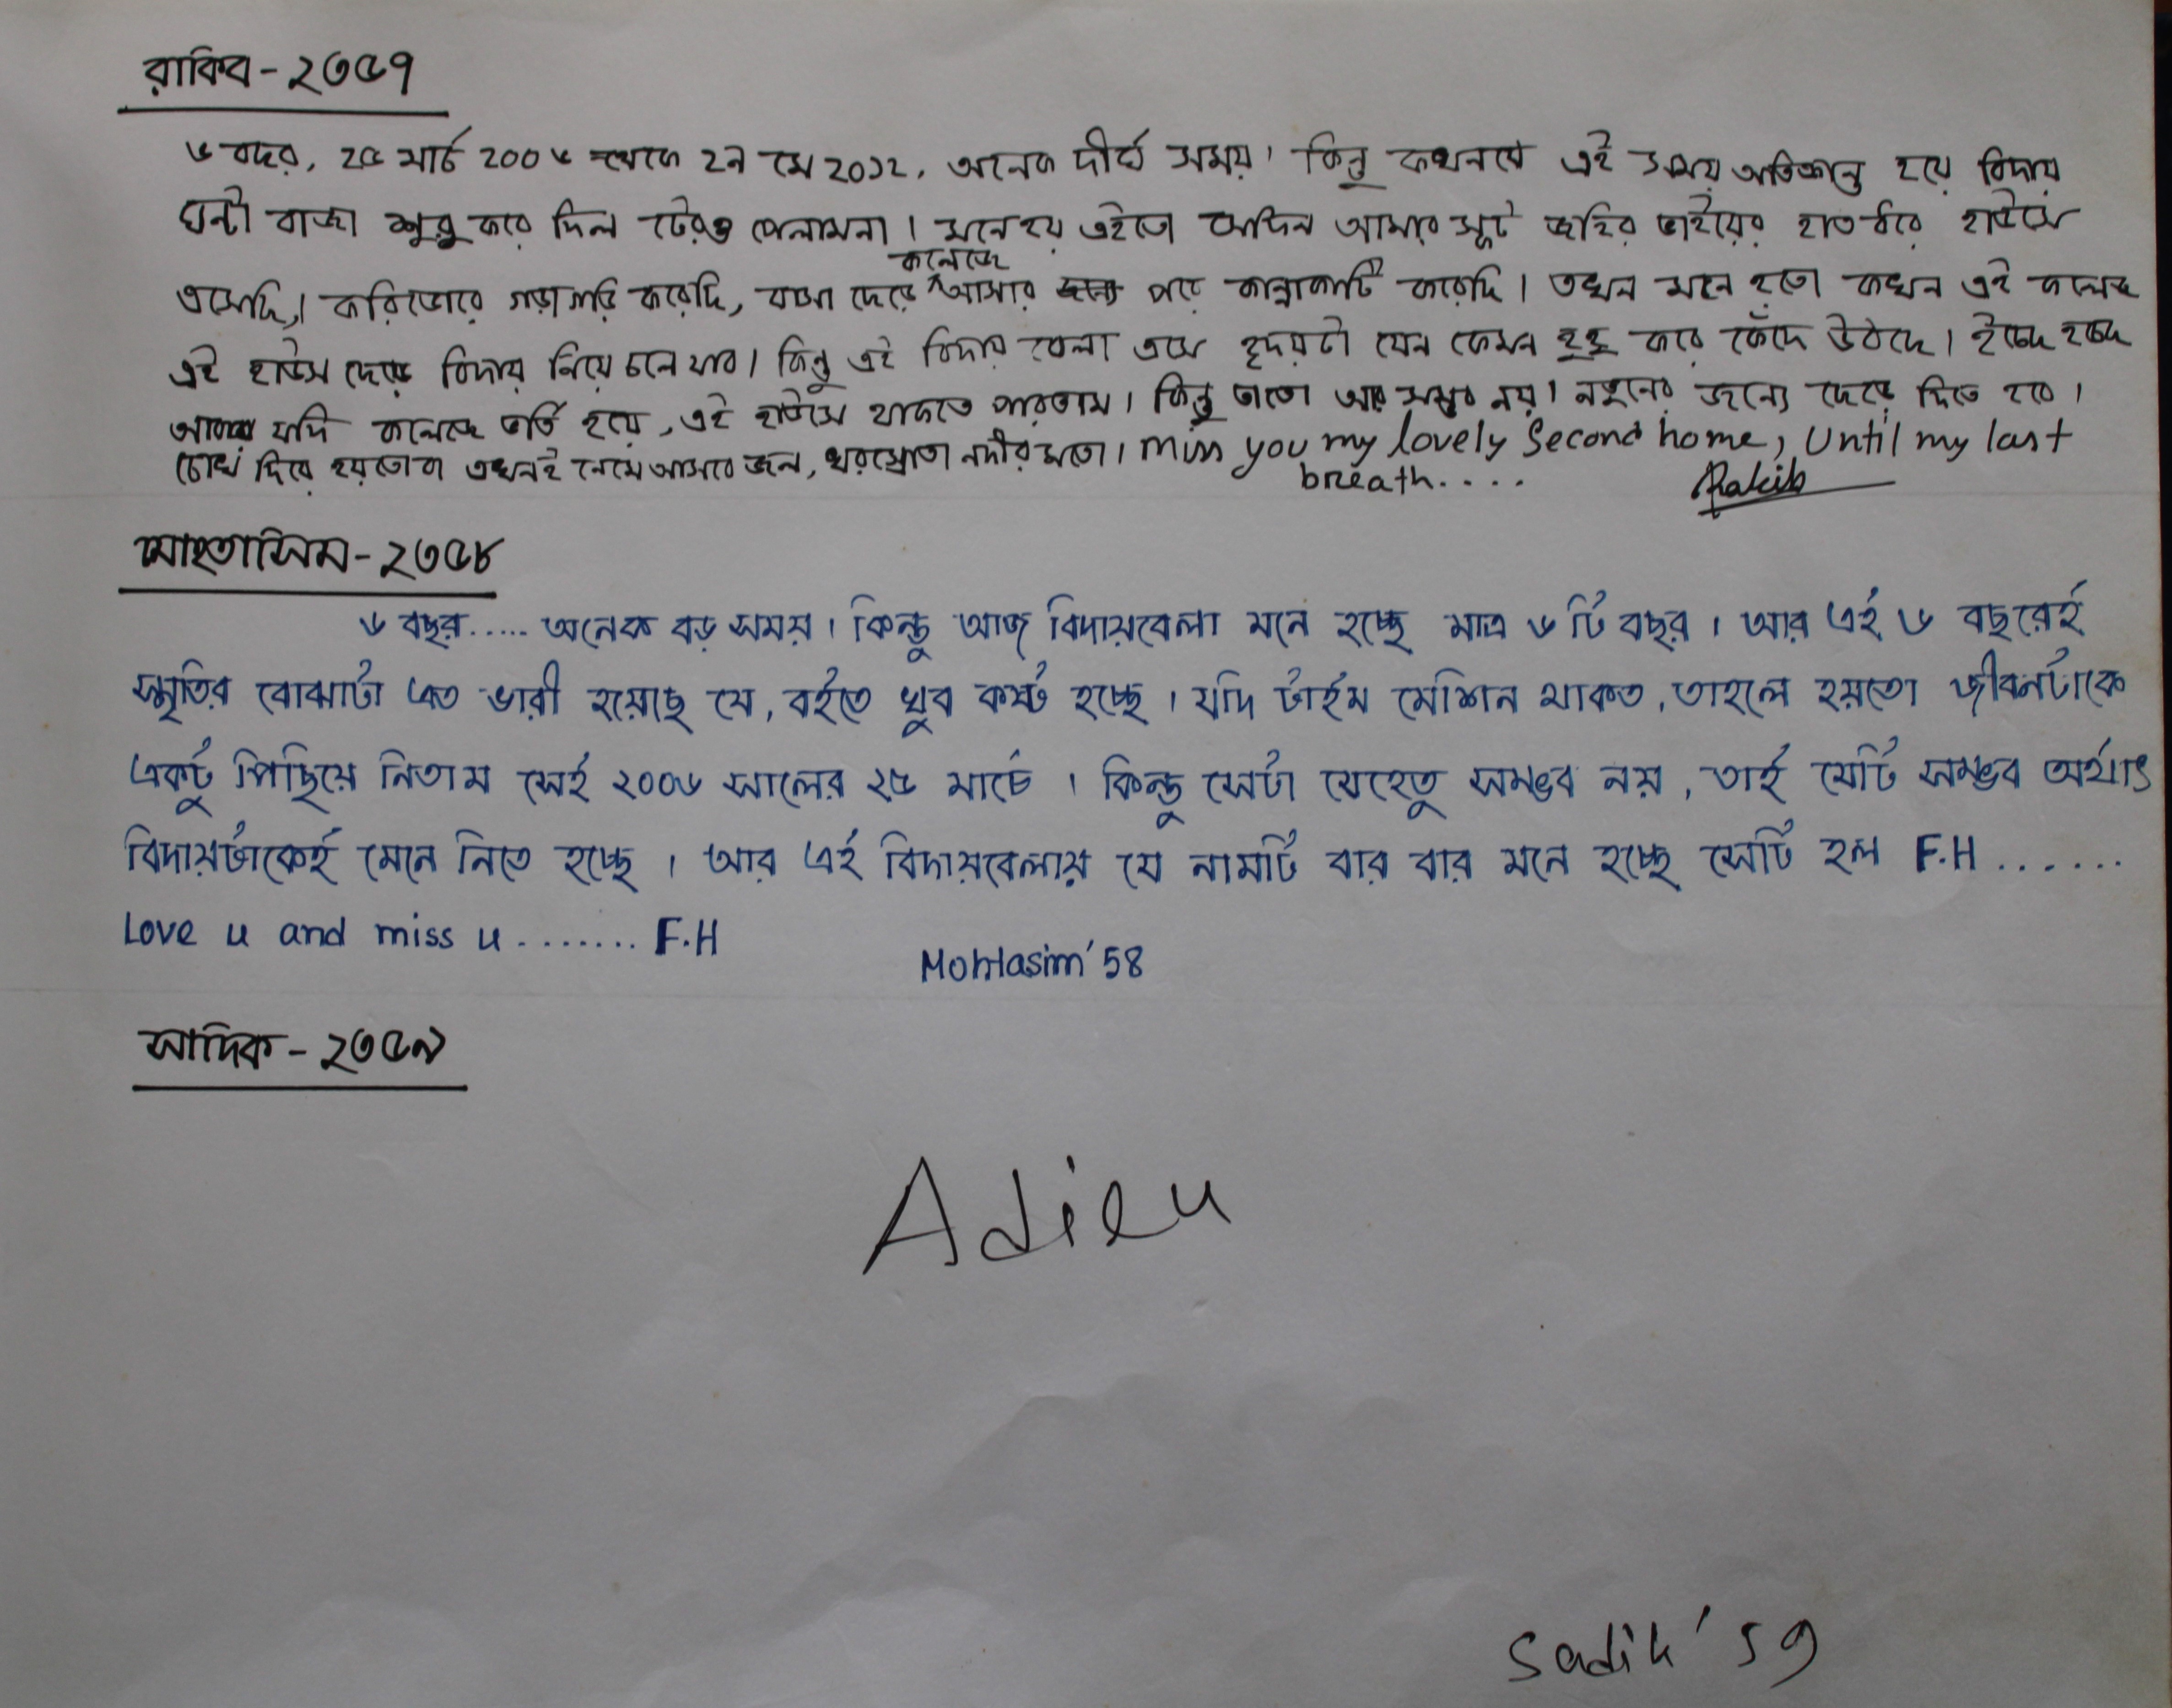 রাকিব - ২৩৫৭
৬ বছর, ২৫ মার্চ ২০০৬ থেকে ২৭ মে ২০১২, অনেক দীর্ঘ সময়। কিন্তু কখনযে এই সময় অতিক্রান্ত হয়ে বিদায়
ঘন্টা বাজা শুরু করে দিল টেরও পেলামনা। মনে হয় এইতো সেদিন আমার স্যুট জহির ভাইয়ের হাত ধরে হাউসে
এসেছি। করিডোরে গড়াগড়ি করেছি, বাসা ছেড়ে কলেজে আসার পরে কান্নাকাটি করেছি। তখন মনে হতো কখন এই কলেজ
এই হাউস ছেড়ে বিদায় নিয়ে চলে যাব। কিন্তু এই বিদায় বেলা এসে হৃদয়টা যেন কেমন হুহু করে কেঁদে উঠছে। ইচ্ছে হচ্ছে
আবার যদি কলেজে ভর্তি হয়ে, এই হাউসে থাকতে পারতাম। কিন্তু তাতো আর সম্ভব নয়। নতুনের জন্যে ছেড়ে দিতে হবে।
চোখ দিয়ে হয়তোবা তখনই নেমে আসবে জল, খরস্রোতা নদীর মতো। Miss you my lovely Second home, Until my last
breath....
Rakib
মোহতাসিম - ২৩৫৮
৬ বছর..... অনেক বড় সময়। কিন্তু আজ বিদায়বেলা মনে হচ্ছে মাত্র ৬ টি বছর। আর এই ৬ বছরেই
স্মৃতির বোঝাটা এত ভারী হয়েছে যে, বইতে খুব কষ্ট হচ্ছে। যদি টাইম মেশিন থাকত, তাহলে হয়তো জীবনটাকে
একটু পিছিয়ে নিতাম সেই ২০০৬ সালের ২৫ মার্চে। কিন্তু সেটা যেহেতু সম্ভব নয়, তাই যেটি সম্ভব অর্থাৎ
বিদায়টাকেই মেনে নিতে হচ্ছে। আর এই বিদায়বেলায় যে নামটি বার বার মনে হচ্ছে সেটি হল F.H ......
Love u and miss u ....... F.H
Mohtasim'58
সাদিক - ২৩৫৯
Adieu
Sadik'59